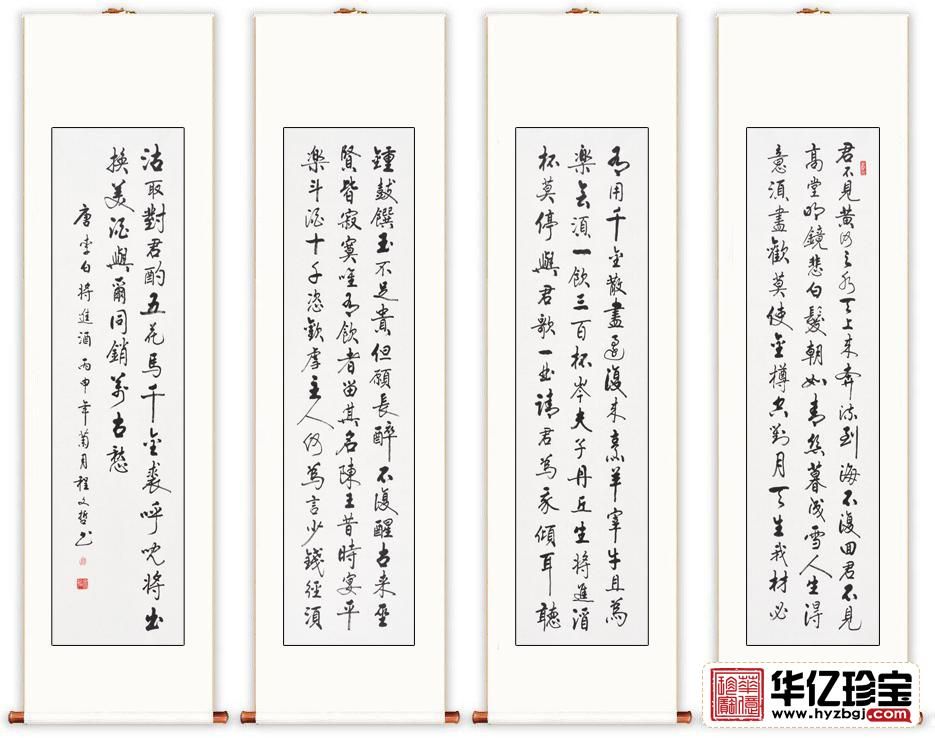 君不見黄河之水天上来奔流到海不復回君不見
高堂明鏡悲白髮朝如青絲暮成雪人生得
意須盡歡莫使金樽空對月天生我材必
有用千金散盡還復来烹羊宰牛且為
樂會須一飲三百杯岑夫子丹丘生將進酒
杯莫停與君歌一曲請君為我傾耳聽
鍾鼓饌玉不足貴但願長醉不復醒古来聖
賢皆寂寞唯有飲者留其名陳王昔時宴平
樂斗酒十千恣歡虐主人何為言少錢徑須
沽取對君酌五花馬千金裘呼兒將出
換美酒與爾同銷萬古愁
唐李白將進酒丙申年菊月程文哲书
华亿珍宝
www.hyzbgj.com